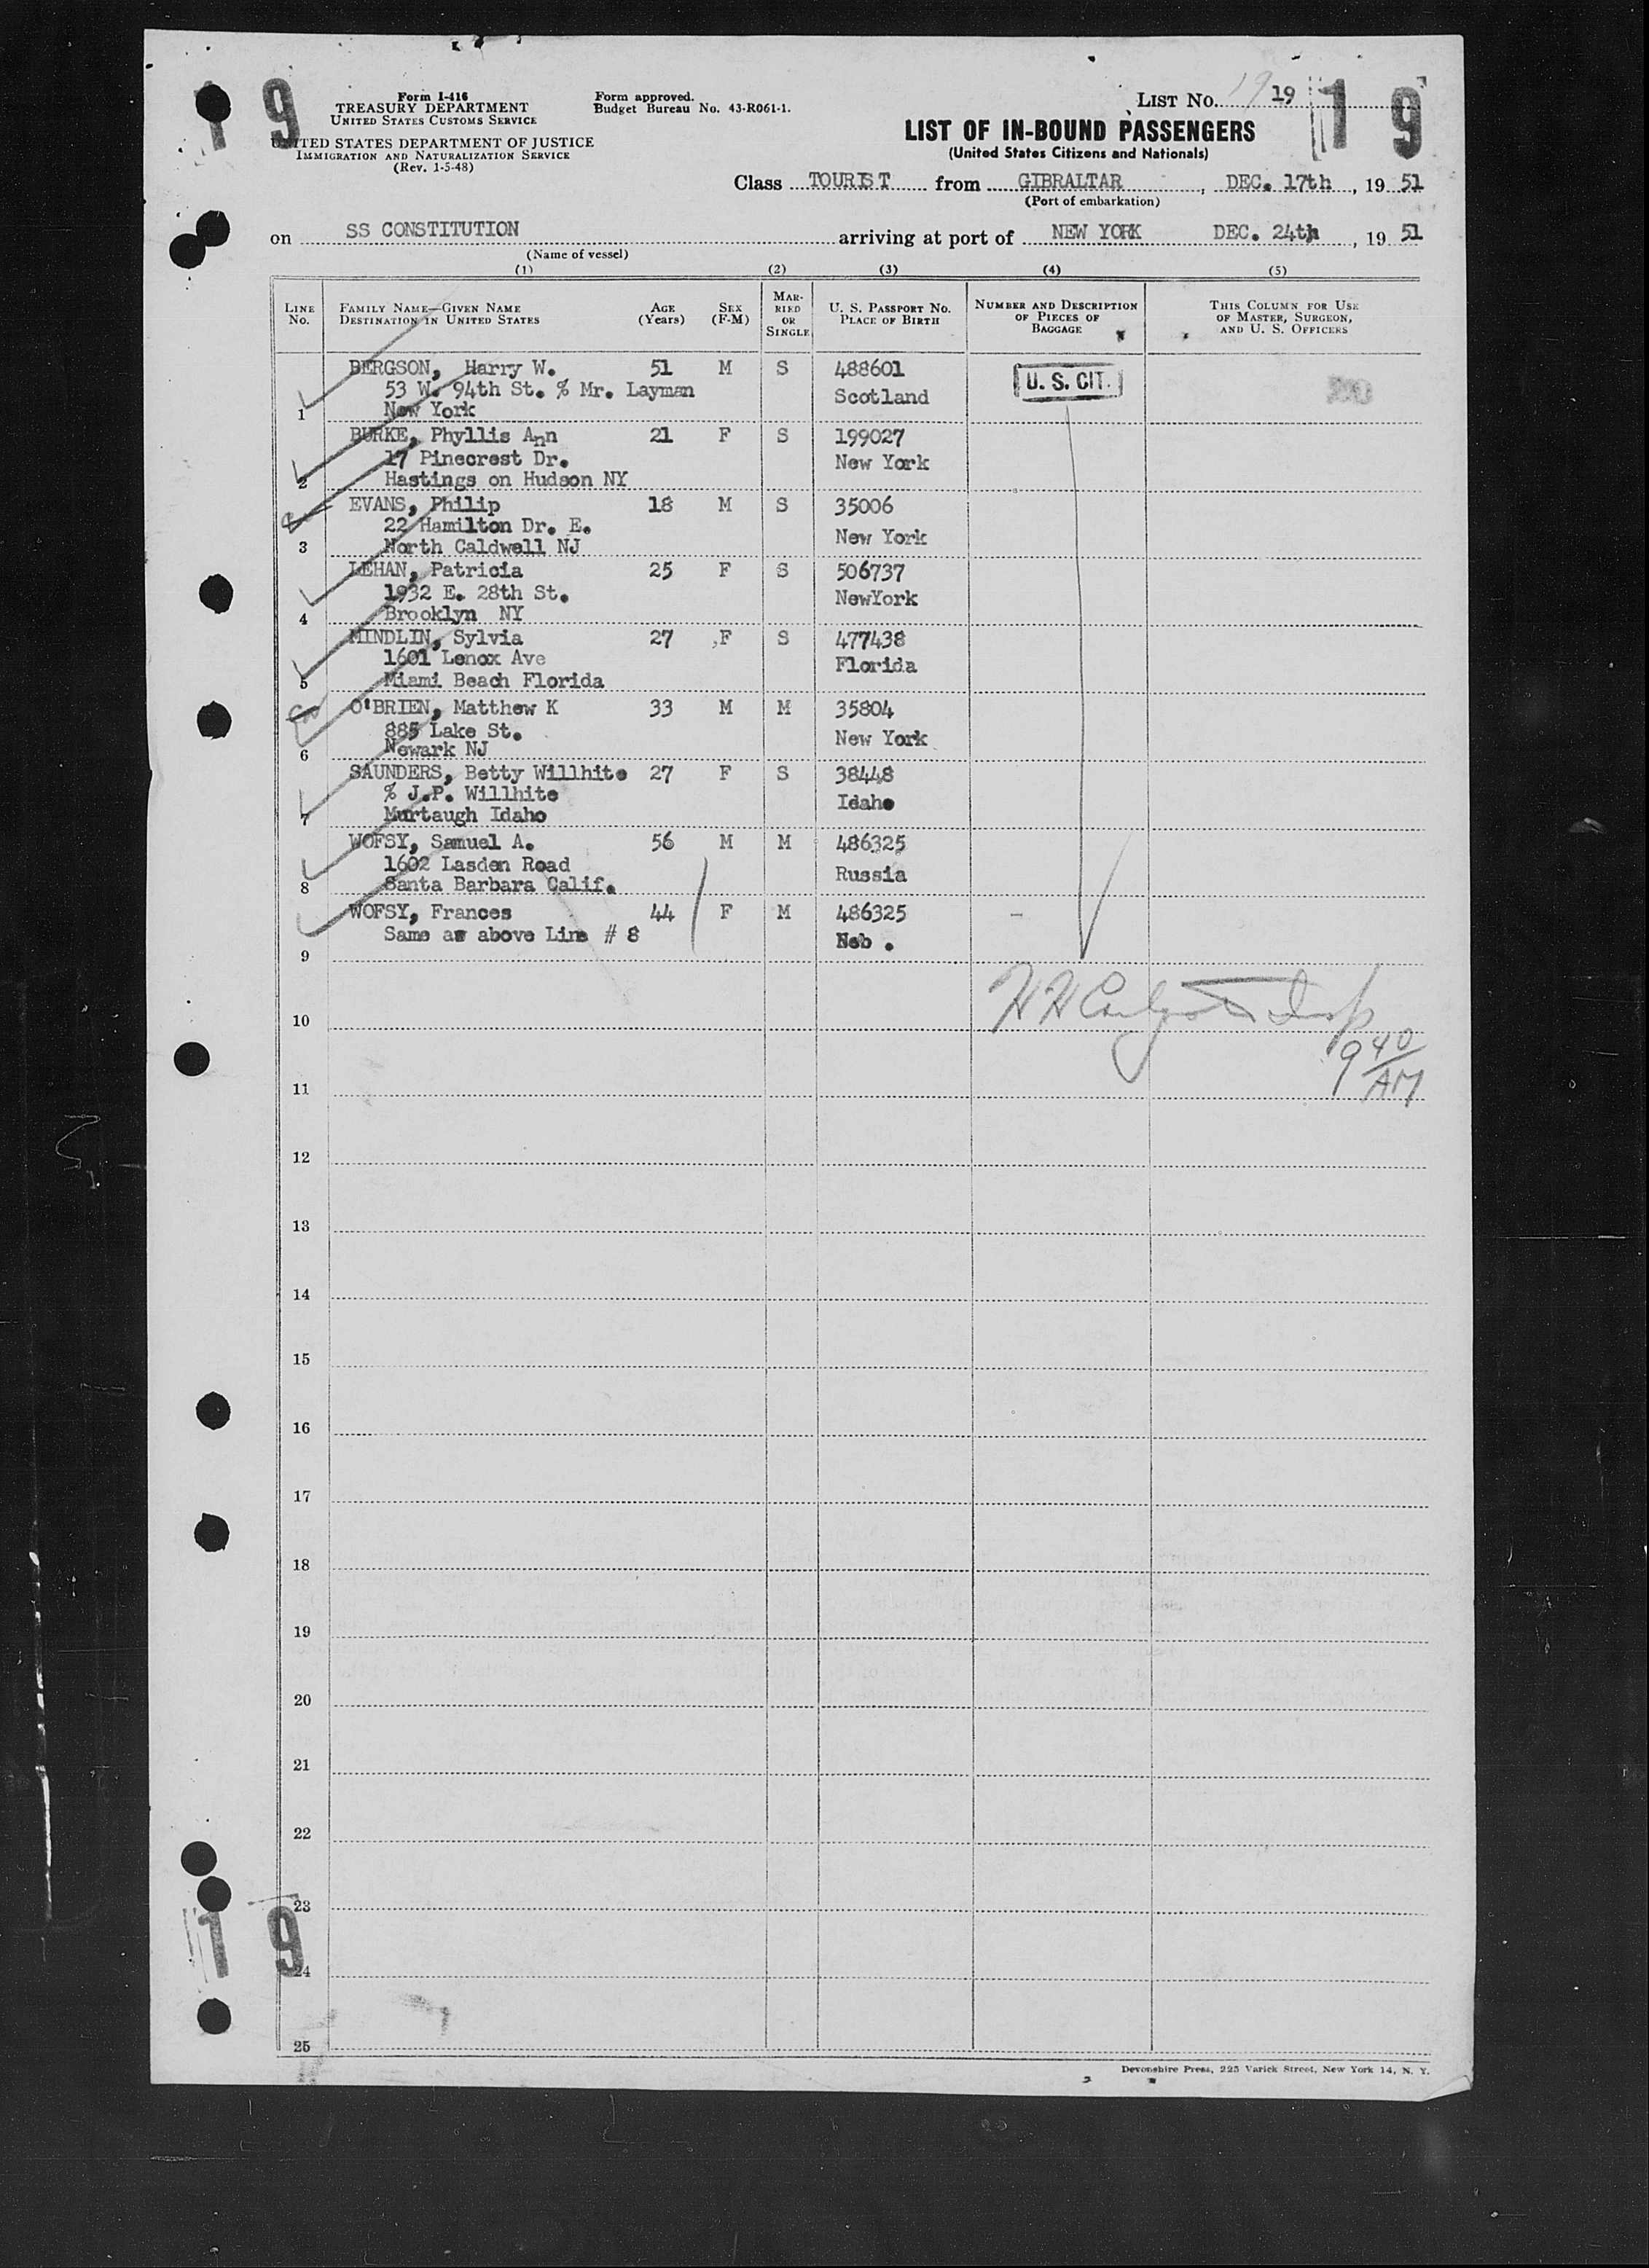 19
Form I-416
TREASURY DEPARTMENT
UNITED STATES CUSTOMS SERVICE
UNITED STATES DEPARTMENT OF JUSTICE
IMMIGRATION AND NATURALIZATION SERVICE
(Rev. 1-5-48)
Form approved.
Budget Bureau No. 43-R061-1.
LIST NO. 19 19
19
LIST OF IN-BOUND PASSENGERS
(United States Citizens and Nationals)
Class TOURIST from GIBRALTAR, DEC. 17th, 19 51
(Port of embarkation)
on SS CONSTITUTION arriving at port of NEW YORK DEC. 24th, 19 51
(Name of vessel)
(1) (2) (3) (4) (5)
LINE No. FAMILY NAME—GIVEN NAME DESTINATION IN UNITED STATES AGE (Years) SEX (F-M) MARRIED OR SINGLE U. S. PASSPORT NO. PLACE OF BIRTH NUMBER AND DESCRIPTION OF PIECES OF BAGGAGE THIS COLUMN FOR USE OF MASTER, SURGEON, AND U. S. OFFICERS
BERGSON, Harry W. 51 M S 488601 U. S. CIT.
53 W. 94th St. % Mr. Layman Scotland
1 New York
BURKE, Phyllis Ann 21 F S 199027
17 Pinecrest Dr. New York
2 Hastings on Hudson NY
EVANS, Philip 18 M S 35006
22 Hamilton Dr. E. New York
3 North Caldwell NJ
LEHAN, Patricia 25 F S 506737
1932 E. 28th St. NewYork
4 Brooklyn NY
MINDLIN, Sylvia 27 F S 477438
1601 Lenox Ave Florida
5 Miami Beach Florida
O'BRIEN, Matthew K 33 M M 35804
885 Lake St. New York
6 Newark NJ
SAUNDERS, Betty Willhite 27 F S 38448
% J.P. Willhite Idaho
7 Murtaugh Idaho
WOFSY, Samuel A. 56 M M 486325
1602 Lasden Road Russia
8 Santa Barbara Calif.
WOFSY, Frances 44 F M 486325
Same as above Line # 8 Neb .
9
10
9 40 AM
11
12
13
14
15
16
17
18
19
20
21
22
23
19
24
25
Devonshire Press, 225 Varick Street, New York 14, N. Y.